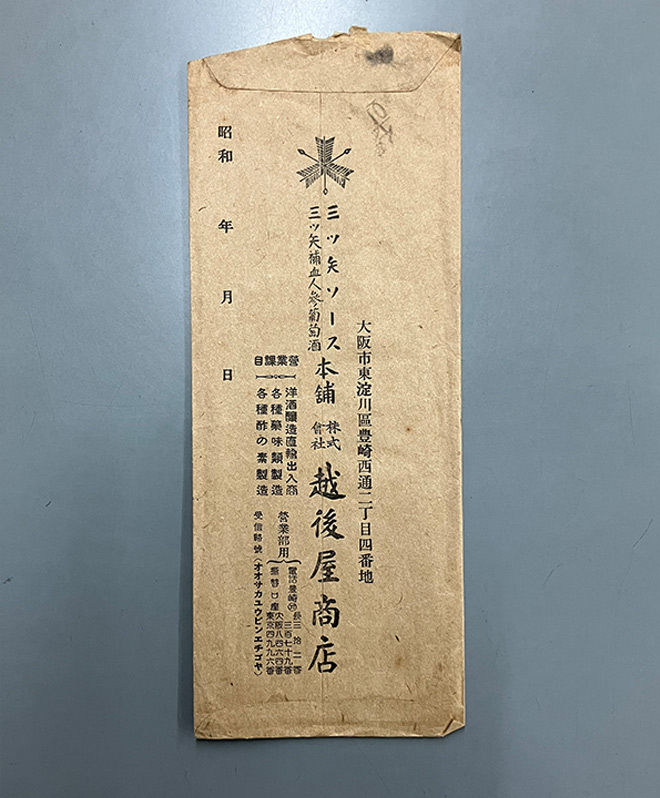 大阪市東淀川區豊崎西通二丁目四番地
三ツ矢ソース
三ツ矢補血人參葡萄酒
本舗
株式
會社
越後屋商店
營業課目
洋酒釀造直輸出入商
各種藥味類製造
各種酢の素製造
營業部用
電話豊崎
長三拾二番
三百七十九番
振替口座
大阪八四六四番
東京四九九六番
受信略號(オオサカユウビンエチゴヤ)
昭和 年 月 日